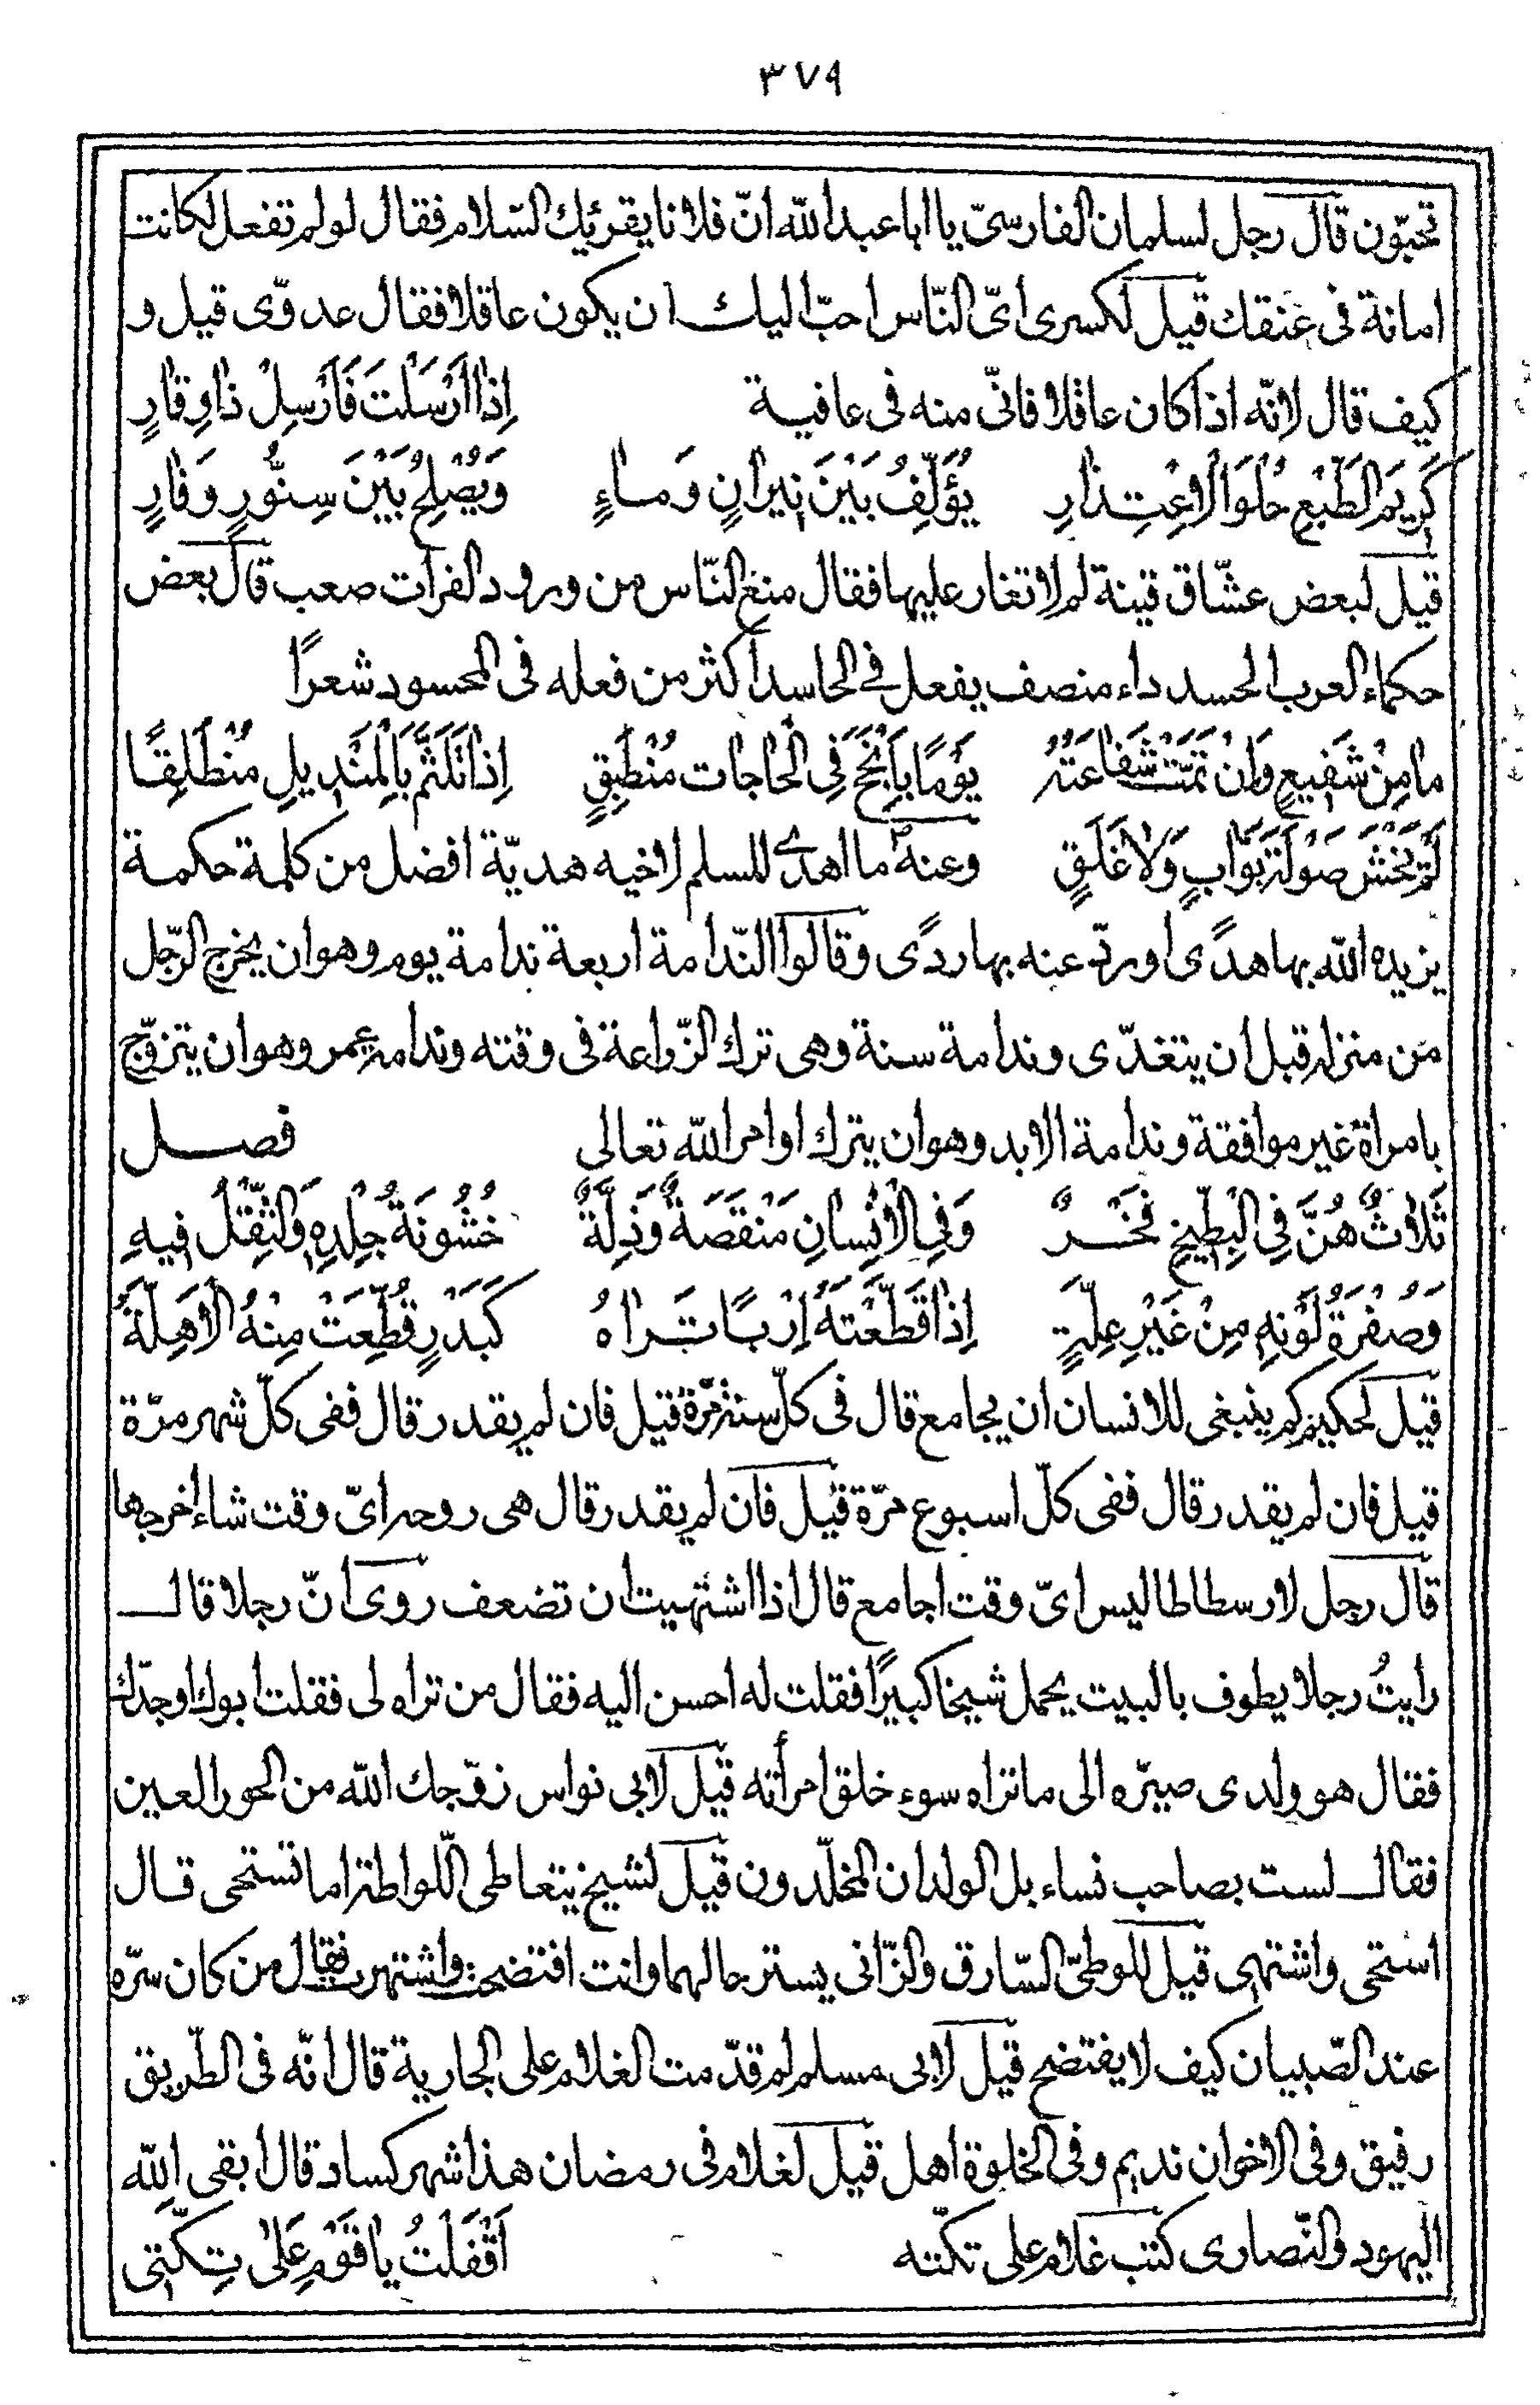 ٣٧٩
تحبّون قال رجل لسلمان الفارسیّ یا ابا عبد اللّه انّ فلانا یقرئك السّلام فقال لو لم تفعل لكانت
امانة فی عنقك قیل لكسری ایّ النّاس احبّ الیك ان یكون عاقلا فقال عدوّی قیل و
كیف قال لانّه اذا كان عاقلا فانّی منه فی عافیة اِذا اَرْسَلْتَ فَاَرْسِلْ ذا وِقارٍ
كَرِیمَ الطَّبْعِ حُلْوَ الْاِعْتِذارِ یُؤَلِّفُ بَیْنَ نِیرانٍ وَماءٍ وَیُصْلِحُ بَیْنَ سِنُّورٍ وَفارٍ
قیل لبعض عشّاق قینة لم لا تغار علیها فقال منع النّاس من ورود الفرات صعب قال بعض
حكماء العرب الحسد داء منصف یفعل فی الحاسد اكثر من فعله فی المحسود شعرًا
ما مِنْ شَفِیعٍ وَاِنْ تَمَّتْ شَفاعَتُهُ یَوْمًا بِاَنْجَحَ فِی الْحاجات مُنْطَبِقٍ اِذا تَلَثَّمَ بِالْمِنْدِیلِ مُنْطَلِقًا
لَمْ یَخْشَ صَوْلَةَ بَوّابٍ وَلا غَلَقٍ وعنه ما اهدی المسلم لاخیه هدیّة افضل من كلمة حكمة
یزیده اللّه بها هدًی او ردّ عنه بها ردًی وقالوا النّدامة اربعة ندامة یوم وهو ان یخرج الرّجل
من منزله قبل ان یتغدّی وندامة سنة وهی ترك الزّراعة فی وقته وندامة عمر وهو ان یتزوّج
بامراة غیر موافقة وندامة الابد وهو ان یترك اوامر اللّه تعالی فصل
ثَلاثٌ هُنَّ فِی الْبِطِّیخِ فَخْرٌ وَفِی الْاِنْسانِ مَنْقَصَةٌ وَذِلَّةٌ خُشُونَةُ جِلْدِهِ وَالثِّقْلُ فِیهِ
وَصُفْرَةُ لَوْنِهِ مِنْ غَیْرِ عِلَّةٍ اِذا قَطَّعْتَهُ اِرْبًا تَراهُ كَبَدْرٍ قُطِّعَتْ مِنْهُ الْاَهِلَّةُ
قیل لحكیم كم ینبغی للانسان ان یجامع قال فی كلّ سنة مرّة قیل فان لم یقدر قال ففی كلّ شهر مرّة
قیل فان لم یقدر قال ففی كلّ اسبوع مرّة قیل فان لم یقدر قال هی روحه ایّ وقت شاء اخرجها
قال رجل لارسطاطالیس ایّ وقت اجامع قال اذا اشتهیت ان تضعف روی انّ رجلا قال
رایتُ رجلا یطوف بالبیت یحمل شیخا كبیرًا فقلت له احسن الیه فقال من تراه لی فقلت ابوك او جدّك
فقال هو ولدی صیّره الی ما تراه سوء خلق امرأته قیل لابی نواس زوّجك اللّه من الحور العین
فقال لست بصاحب نساء بل الولدان المخلّدون قیل لشیخ یتعاطی اللّواطة اما تستحی قال
استحی واشتهی قیل للوطیّ السّارق والزّانی یستر حالهما وانت افتضحت واشتهرت فقال من كان سرّه
عند الصّبیان كیف لا یفتضح قیل لابی مسلم لم قدّمت الغلام علی الجاریة قال انّه فی الطّریق
رفیق وفی الاخوان ندیم وفی الخلوة اهل قیل لغلام فی رمضان هذا شهر كساد قال ابقی اللّه
الیهود والنّصاری كتب غلام علی تكّته اَقْفَلْتُ یا قَوْمِ عَلیٰ تِكَّتِی